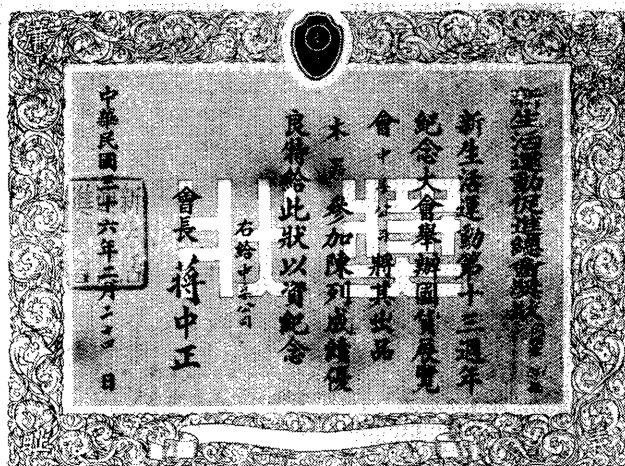 新生活運動促進總會獎狀
新生活運動第十三週年
紀念大會舉辦國貨展覽
會中 公司將其出品
參加陳列成績優
良特給此狀以資紀念
右給中 公司
會長 蔣中正
中華民國三十六年二月二十四日
獎狀